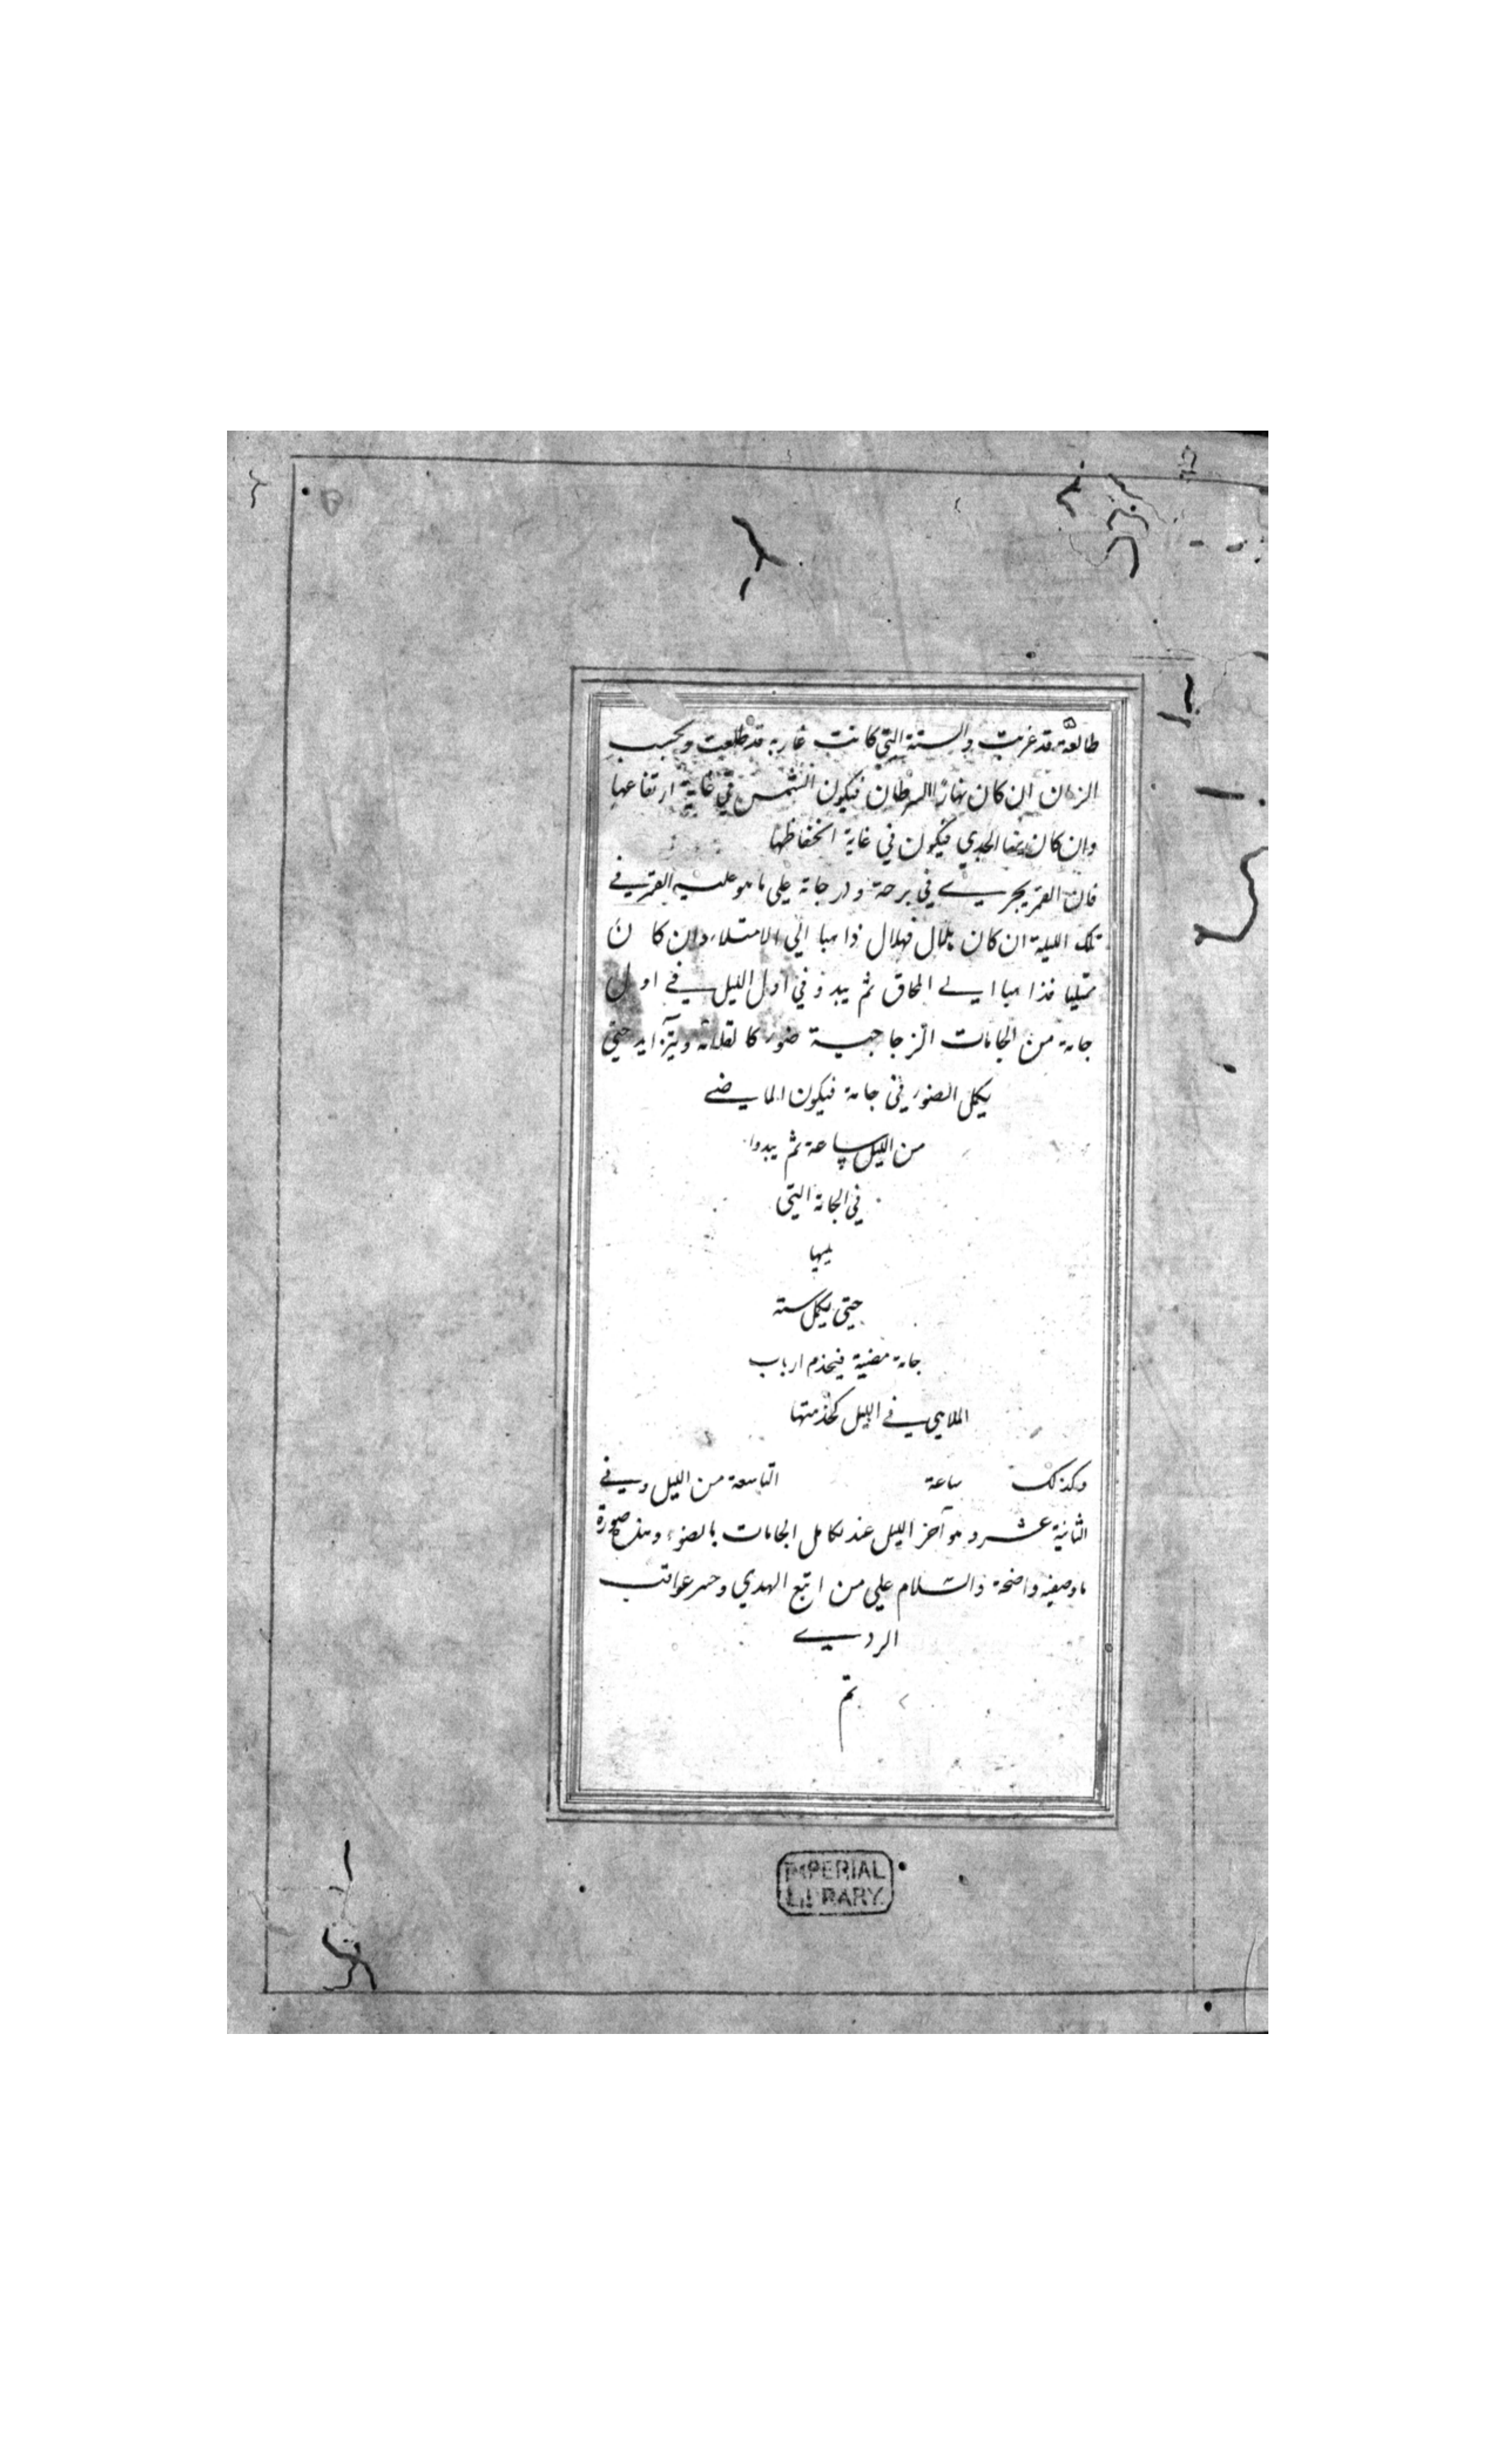 طالعة قد غربت والستة التى كانت غاربه قد طلعت وبحسب
الزمان ان كان نهار السرطان فيكون الشمس فى غاية ارتفاعها
وان كان الجدي فيكون فى غاية انخفاظها
فان القمر يجري في برجة ودرجاته على ما هو عليه القمر في
تلك الليلة ان كان هلال فهلال ذاهبا الى الامتلاء وان كان
ممتليا فذاهبا الى المحاق ثم يبدو في اول الليل في اول
جامة من الجامات الزجاجية ضوء كا ويتزايد حتى
يكمل الضوء في جامة فيكون الماضي
من الليل ساعة ثم يبدوا
في الجامة التى
يليها
حتى يكمل سته
جامة مضية فيخدم ارباب
الملاهي في الليل كخدمتها
وكذلك ساعة التاسعة من الليل وفي
الثانية عشر وهو آخر الليل عند تكامل الجامات بالضوء وهذه صورة
ما وصفته واضحة والسلام على من اتبع الهدي عواقب
الردي
تم
IMPERIAL
LIBRARY.